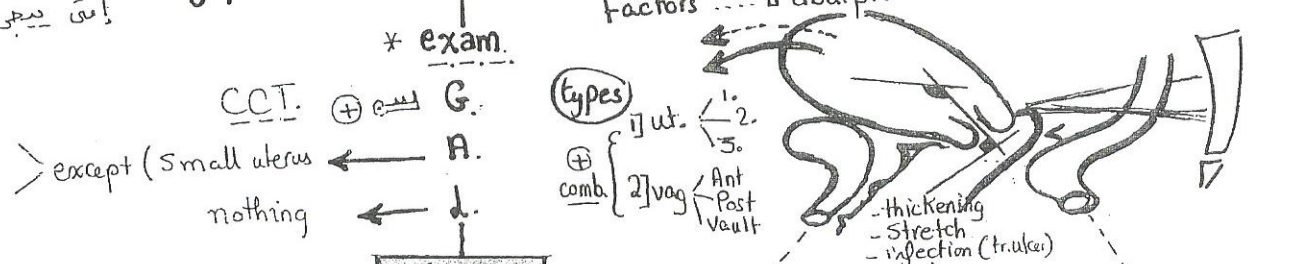 Factors ....
* exam.
CCT. ⊕ G.
except (small uterus ← A.
nothing ← L.
types
1] ut.
1.
2.
3.
⊕
comb.
2] vag
Ant
Post
Vault
- thickening
- stretch
- infection (tr.ulcer)